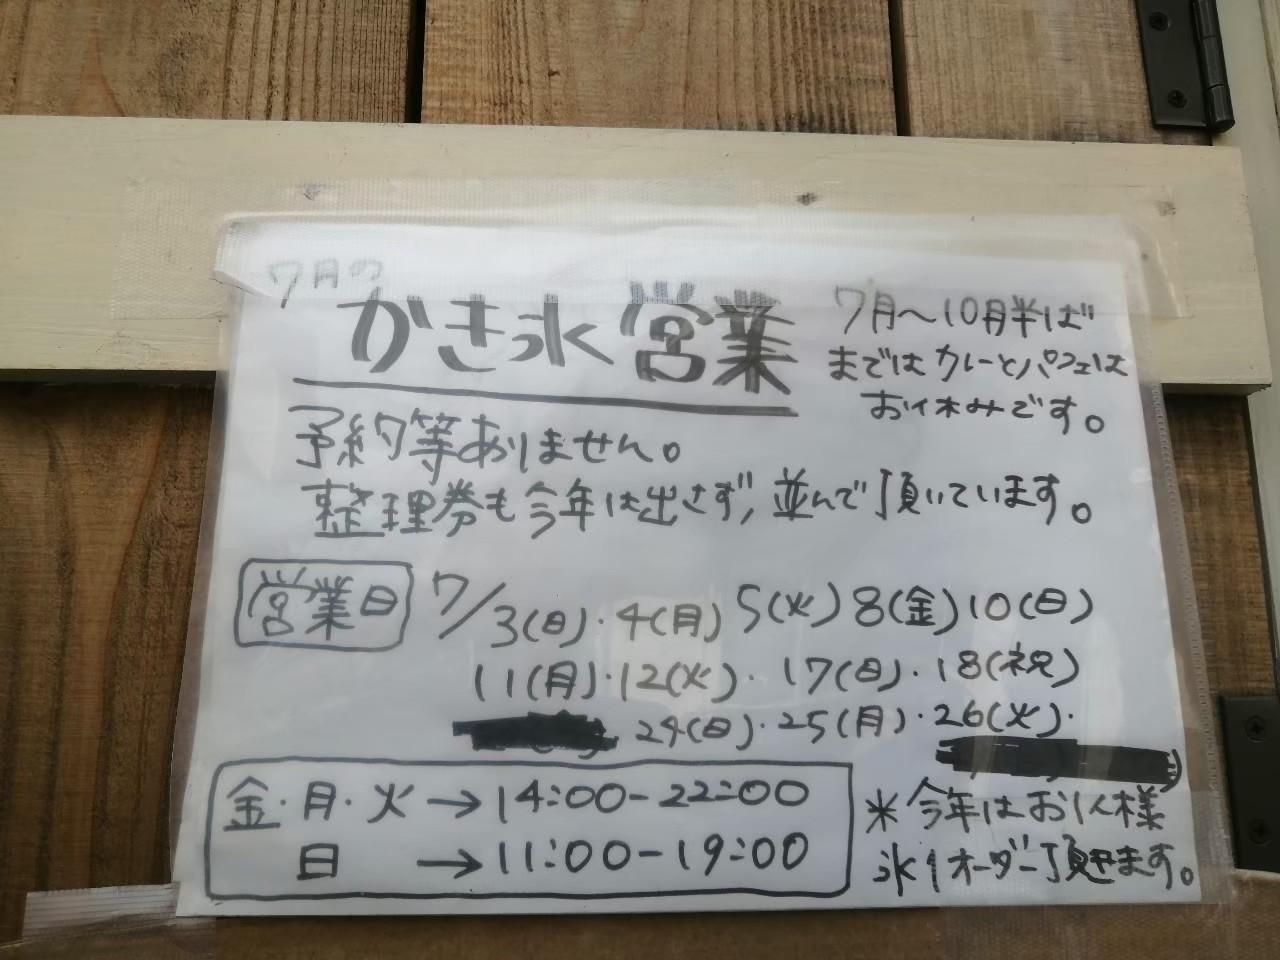 7月の
かき氷営業
7月〜10月半ば
まではカレーとパフェは
お休みです。
予約等ありません。
整理券も今年は出さず、並んで頂いています。
営業日 7/3(日)・4(月) 5(火) 8(金) 10(日)
11(月)・12(火)・17(日)・18(祝)
24(日)・25(月)・26(火)・
金・月・火→14:00-22:00
日→11:00-19:00
*今年はお1人様
氷1オーダー頂きます。